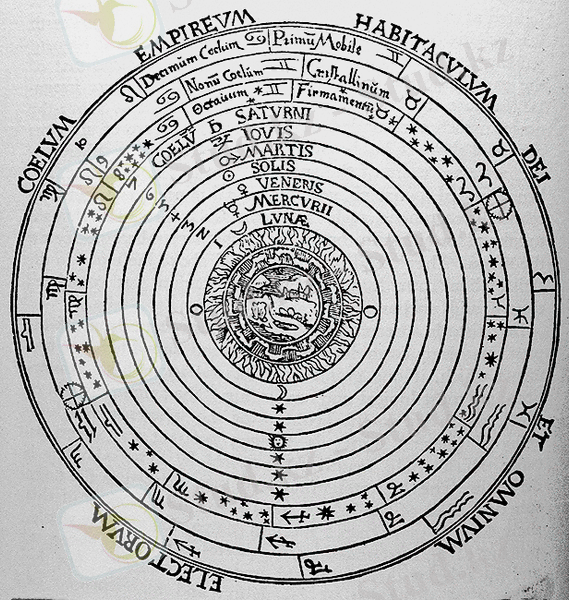 COELVM EMPIREVM HABITACVLVM DEI ET OMNIVM ELECTORVM
10 Decimum Coelum Primū Mobile
9 Nonū Coelum Cristallinum
8 Octauum Firmamentū
7 COELV̄ SATURNI
6 IOVIS
5 MARTIS
4 SOLIS
3 VENERIS
2 MERCVRII
1 LVNÆ